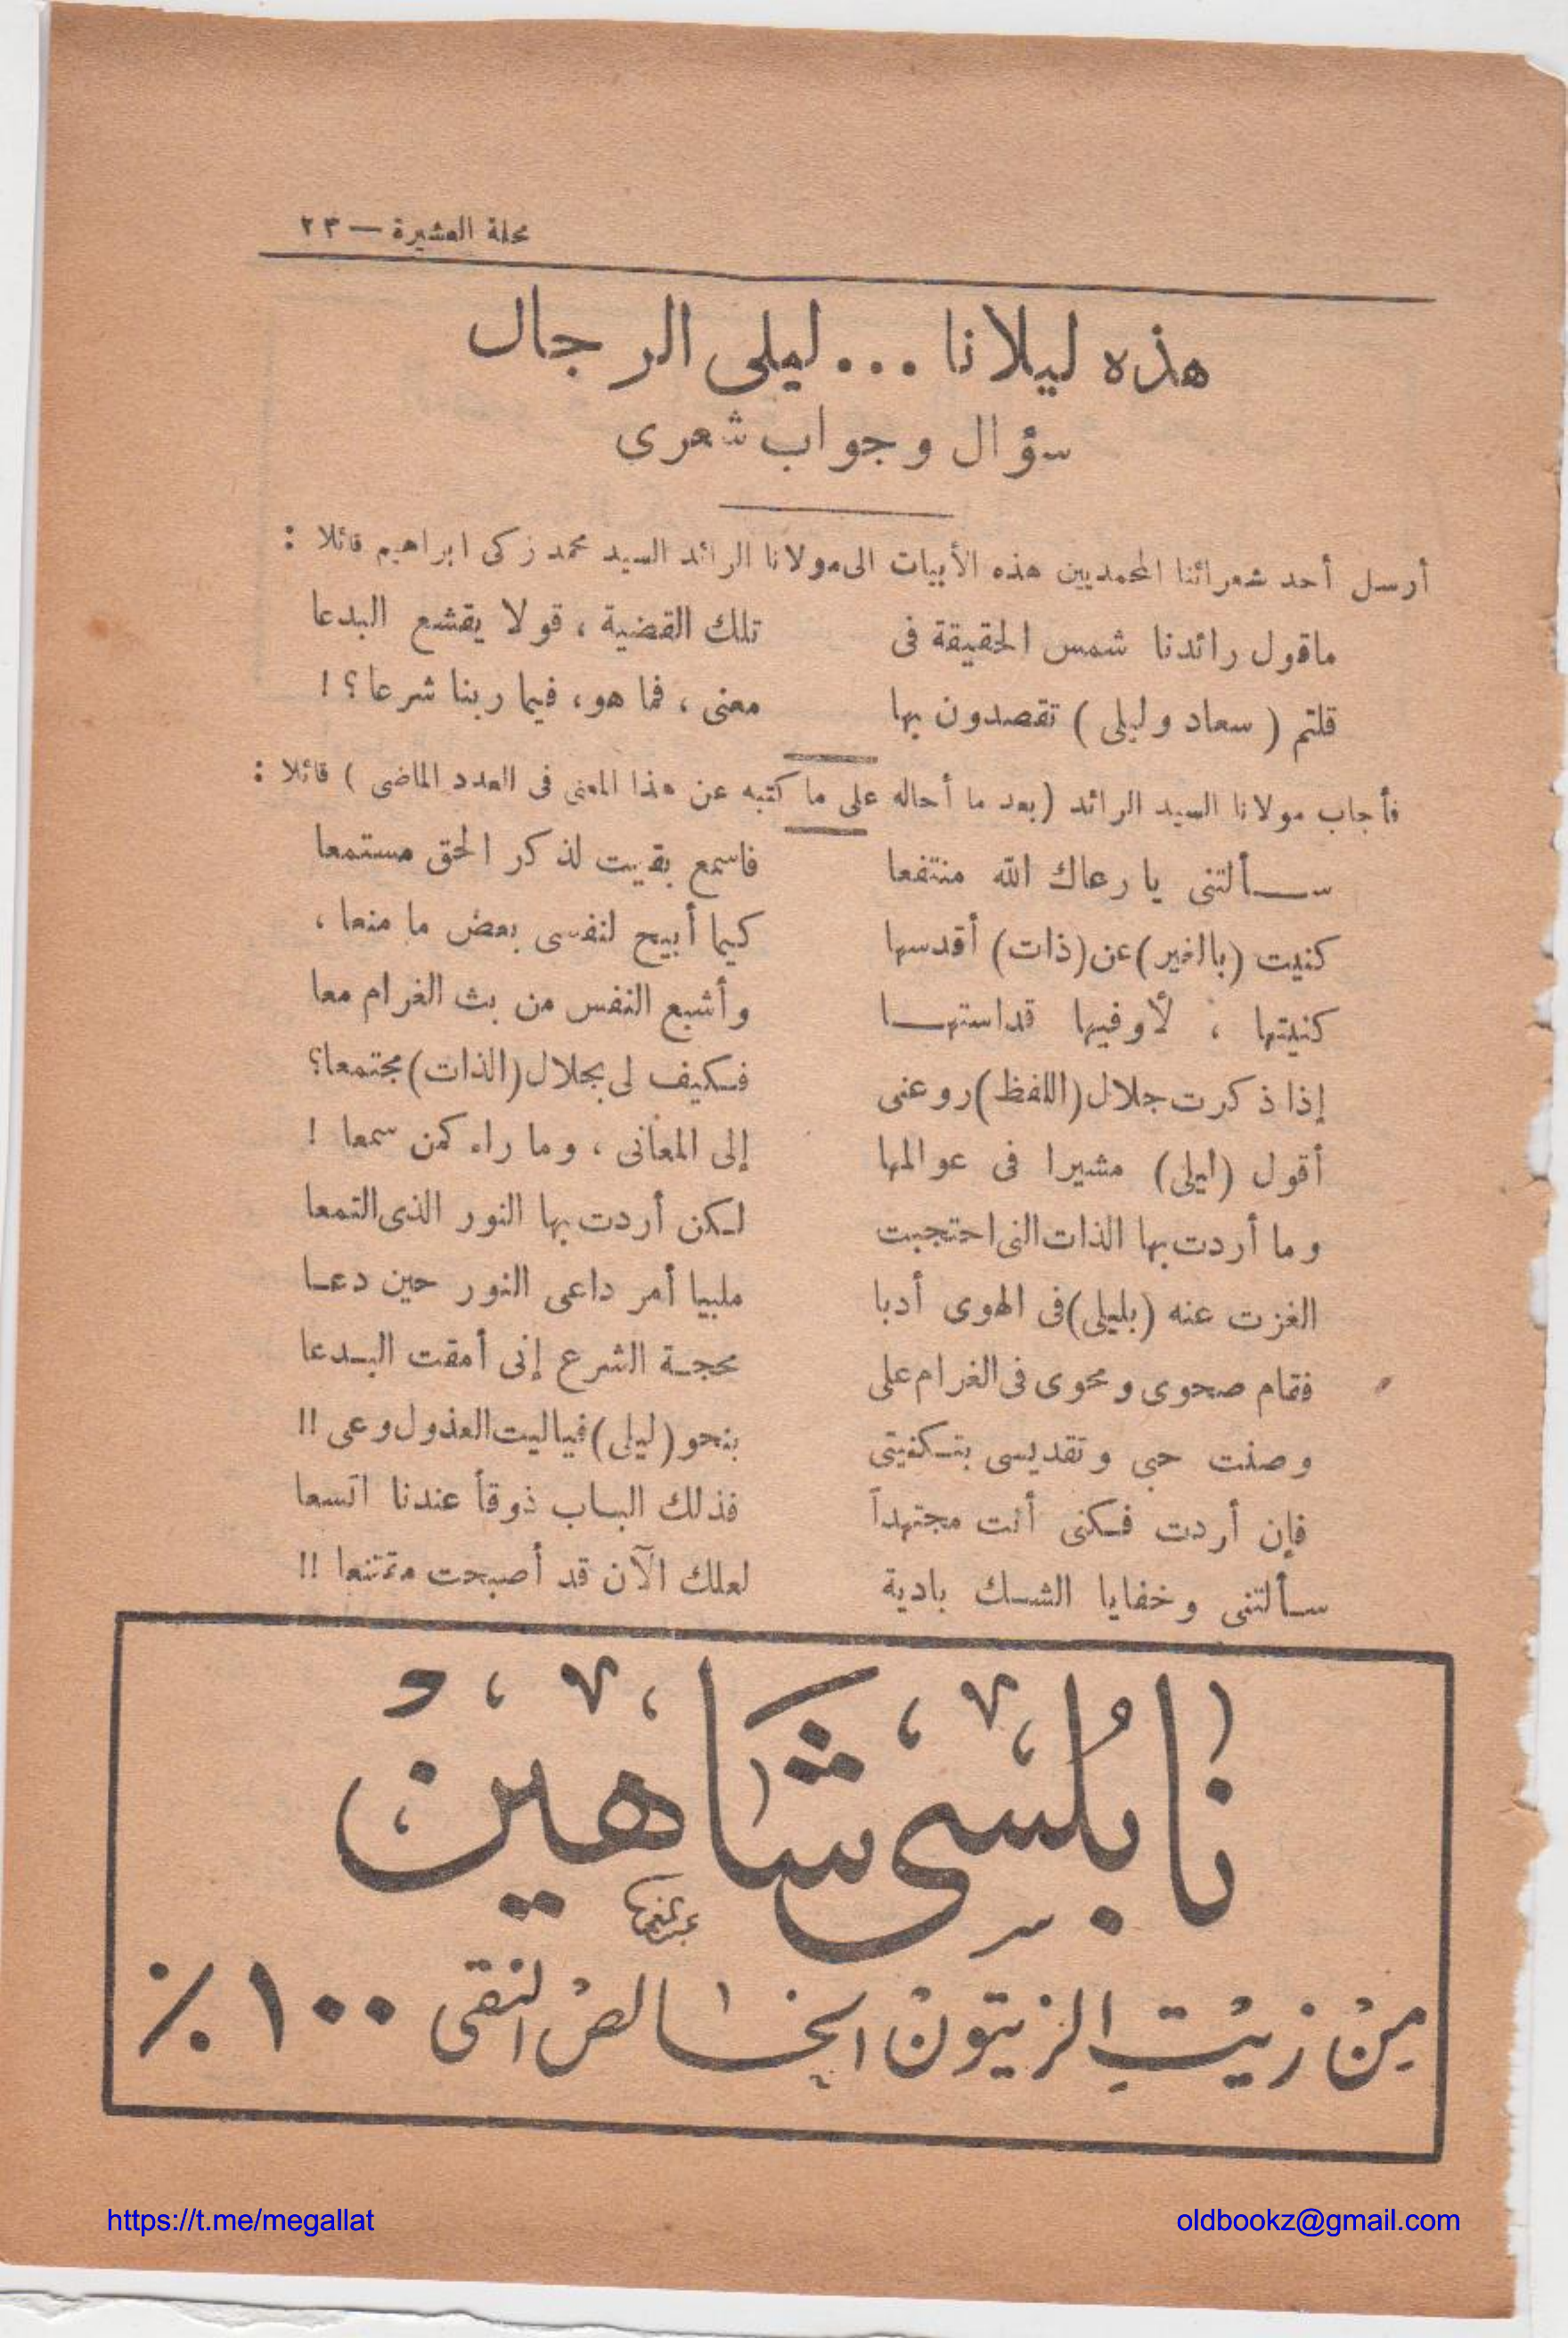 مجلة العشيرة — ٢٣
هذه ليلانا ... ليلى الرجال
سؤال وجواب شعرى
أرسل أحد شعرائنا المحمديين هذه الأبيات الى مولانا الرائد السيد محمد زكى ابراهيم قائلا :
ماقول رائدنا شمس الحقيقة فى تلك القضية ، قولا يقشع البدعا
قلتم ( سعاد وليلى ) تقصدون بها معنى ، فما هو، فيما ربنا شرعا ؟ !
فأجاب مولانا السيد الرائد (بعد ما أحاله على ما كتبه عن هذا المعنى فى العدد الماضى ) قائلا :
ســألتنى يا رعاك الله منتفعا فاسمع بقيت لذكر الحق مستمعا
كنيت (بالغير) عن (ذات) أقدسها كيما أبيح لنفسى بعض ما منعا ،
كنيتها ، لأوفيها قداستهــا وأشبع النفس من بث الغرام معا
إذا ذكرت جلال (اللفظ) روعنى فكيف لى بجلال (الذات) مجتمعا؟
أقول (ليلى) مشيرا فى عوالمها إلى المعانى ، وما راء كمن سمعا !
وما أردت بها الذات التى احتجبت لكن أردت بها النور الذى التمعا
الغزت عنه (بليلى) فى الهوى أدبا ملبيا أمر داعى النور حين دعـا
فقام صحوى ومحوى فى الغرام على محجـة الشرع إنى أمقت البـدعا
وصنت حبى وتقديسى بتكنيتى بنحو (ليلى) فياليت العذول وعى !!
فإن أردت فكنى أنت مجتهداً فذلك البـاب ذوقاً عندنا اتسعا
سـألتنى وخفايا الشـك بادية لعلك الآن قد أصبحت مقتنعا !!
نَابُلسِى شَاهِينْ
مِنْ زيْتِ الزيتونْ الخَالصْ النقى ١٠٠ ٪
https://t.me/megallat
oldbookz@gmail.com